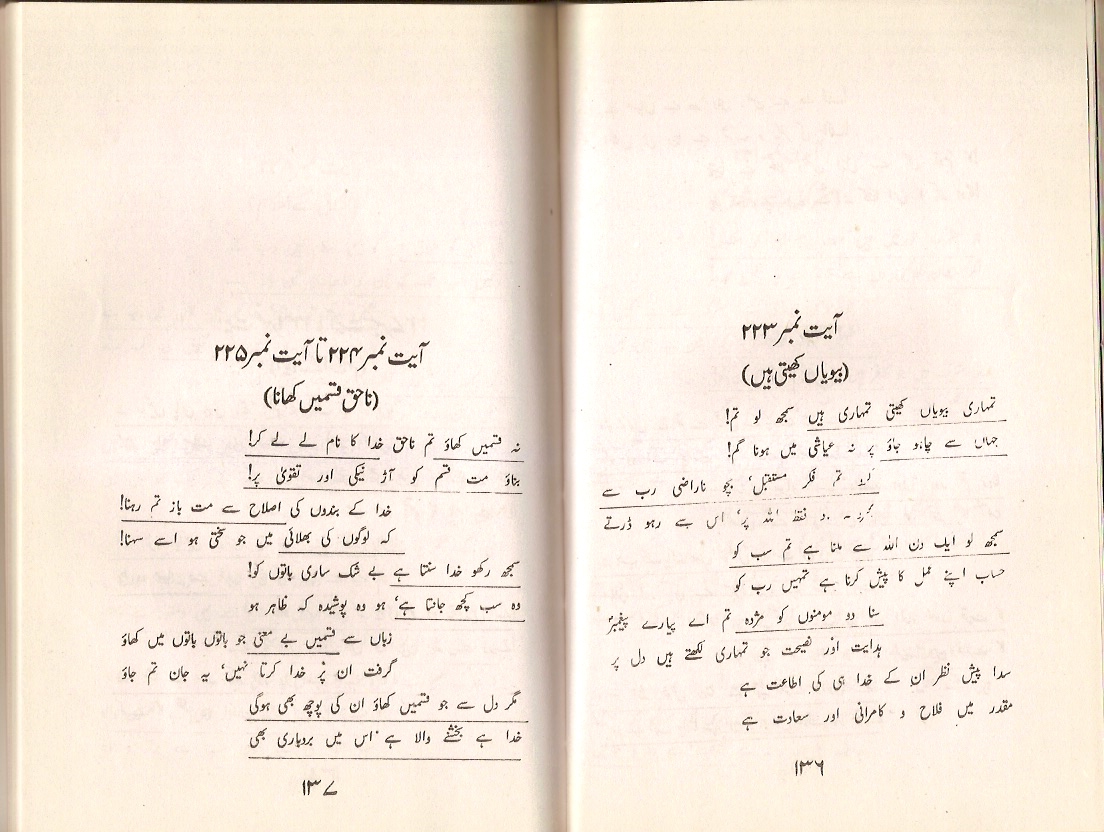 آیت نمبر ۲۲۳
(بیویاں کھیتی ہیں)
تمہاری بیویاں کھیتی تمہاری ہیں سمجھ لو تم!
جہاں سے چاہو جاؤ پر نہ عیاشی میں ہونا گم!
تم فکر مستقبل، بچو ناراضی رب سے
اس سے رہو ڈرتے
سمجھ لو ایک دن اللہ سے ملنا ہے تم سب کو
حساب اپنے عمل کا پیش کرنا ہے تمہیں رب کو
سنا دو مومنوں کو مژدہ تم اے پیارے پیغمبرؐ
ہدایت اور نصیحت جو تمہاری لکھتے ہیں دل پر
سدا پیش نظر ان کے خدا ہی کی اطاعت ہے
مقدر میں فلاح و کامرانی اور سعادت ہے
۱۳۶
آیت نمبر ۲۲۴ تا آیت نمبر ۲۲۵
(ناحق قسمیں کھانا)
نہ قسمیں کھاؤ تم ناحق خدا کا نام لے لے کر!
بناؤ مت قسم کو آڑ نیکی اور تقویٰ پر!
خدا کے بندوں کی اصلاح سے مت باز تم رہنا!
کہ لوگوں کی بھلائی میں جو سختی ہو اسے سہنا!
سمجھ رکھو خدا سنتا ہے بے شک ساری باتوں کو!
وہ سب کچھ جانتا ہے، ہو وہ پوشیدہ کہ ظاہر ہو
زباں سے قسمیں بے معنی جو باتوں باتوں میں کھاؤ
گرفت ان پر خدا کرتا نہیں، یہ جان تم جاؤ
مگر دل سے جو قسمیں کھاؤ ان کی پوچھ بھی ہوگی
خدا ہے بخشنے والا ہے اس میں بردباری بھی
۱۳۷